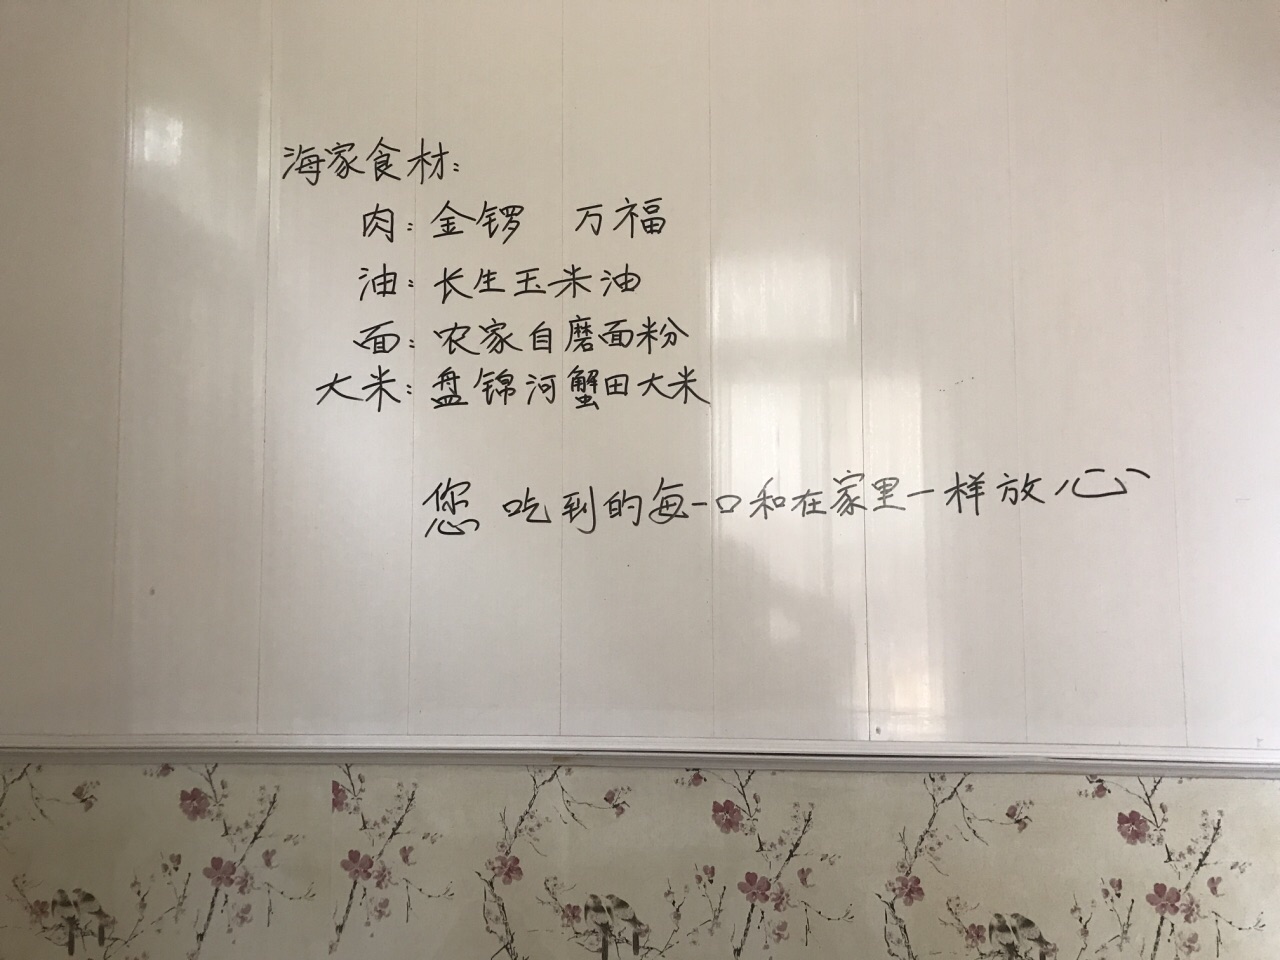 海家食材:
肉: 金锣 万福
油: 长生玉米油
面: 农家自磨面粉
大米: 盘锦河蟹田大米
您吃到的每一口和在家里一样放心